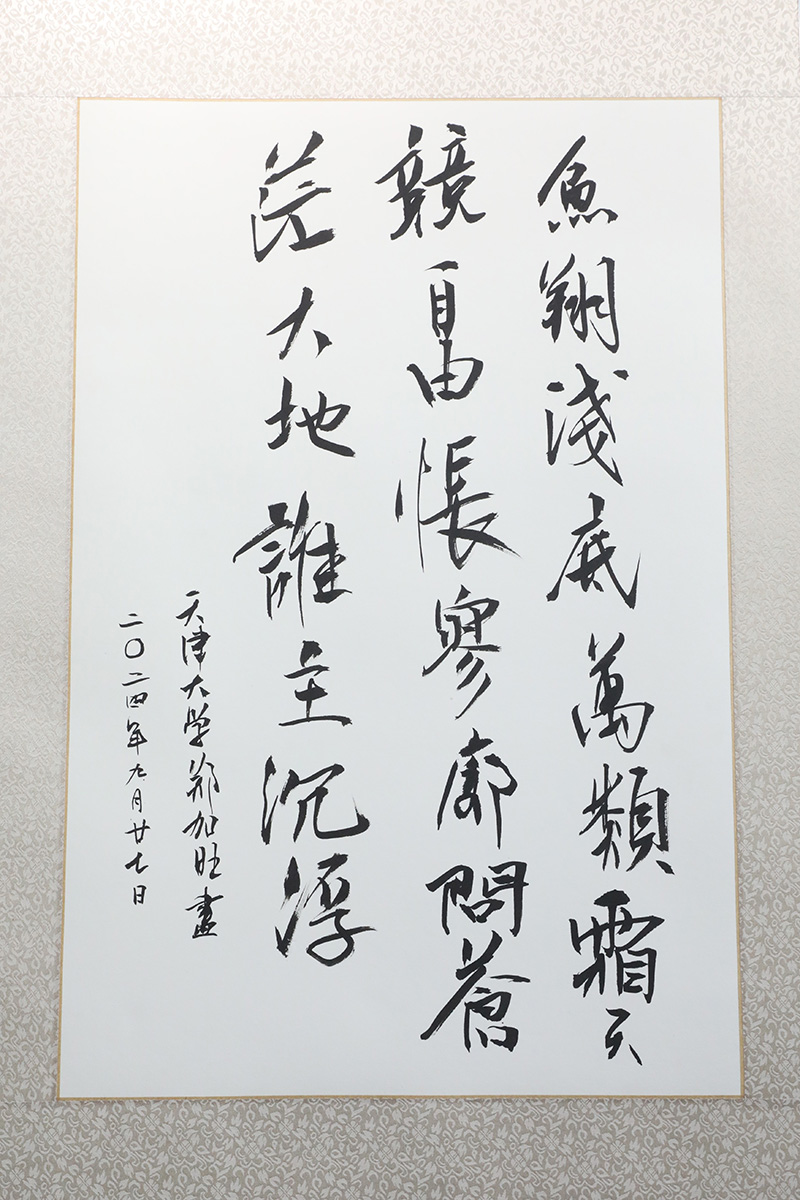 魚翔淺底萬類霜天
競自由悵寥廓問蒼
茫大地誰主沉浮
天津大学郑加旺書
二〇二四年九月廿七日